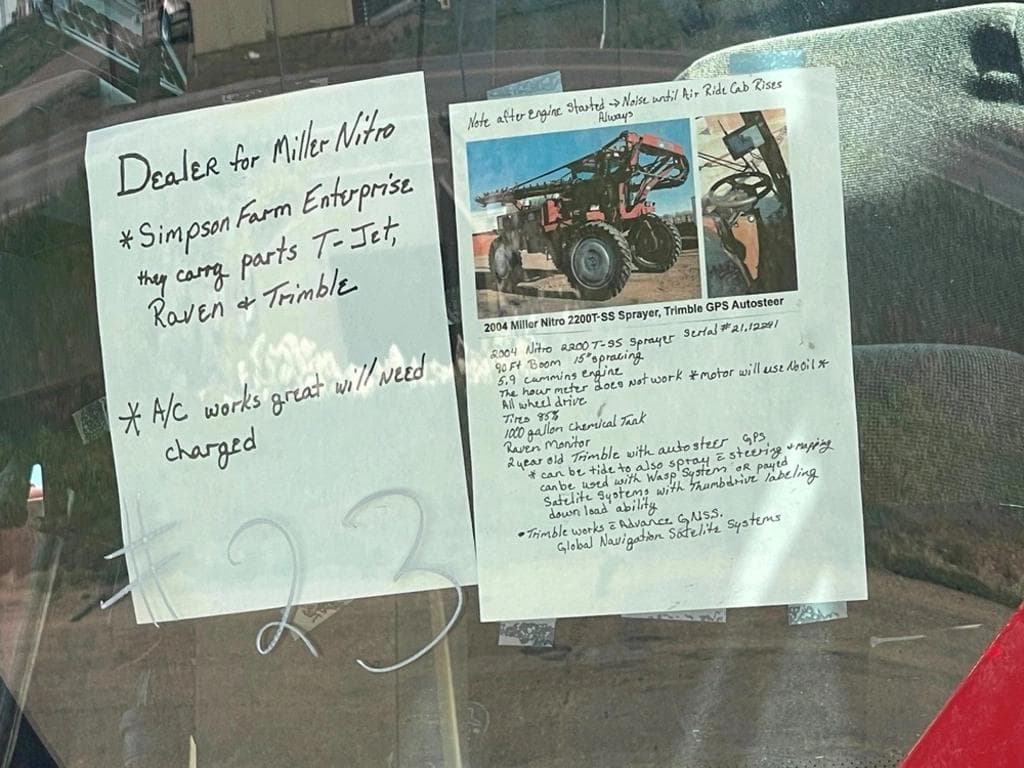 Dealer for Miller Nitro
* Simpson Farm Enterprise
they carry parts T-Jet,
Raven & Trimble
* A/C works great will need
charged
#23
Note after Engine Started → Noise until Air Ride Cab Rises
Always
2004 Miller Nitro 2200T-SS Sprayer, Trimble GPS Autosteer
2004 Nitro 2200T-SS Sprayer Serial #
90 Ft Boom 15" spracing
5.9 cummins engine
The hour meter does not work * motor will use No Oil *
All wheel drive
Tires 85%
1000 gallon Chemical Tank
Raven Monitor
2 year old Trimble with autosteer GPS
* can be tide to also spray c̄ steering & mapping
can be used with Wasp System OR payed
Satelite Systems with Thumbdrive labeling
down load ability
• Trimble works c̄ Advance GNSS.
Global Navigation Satelite Systems